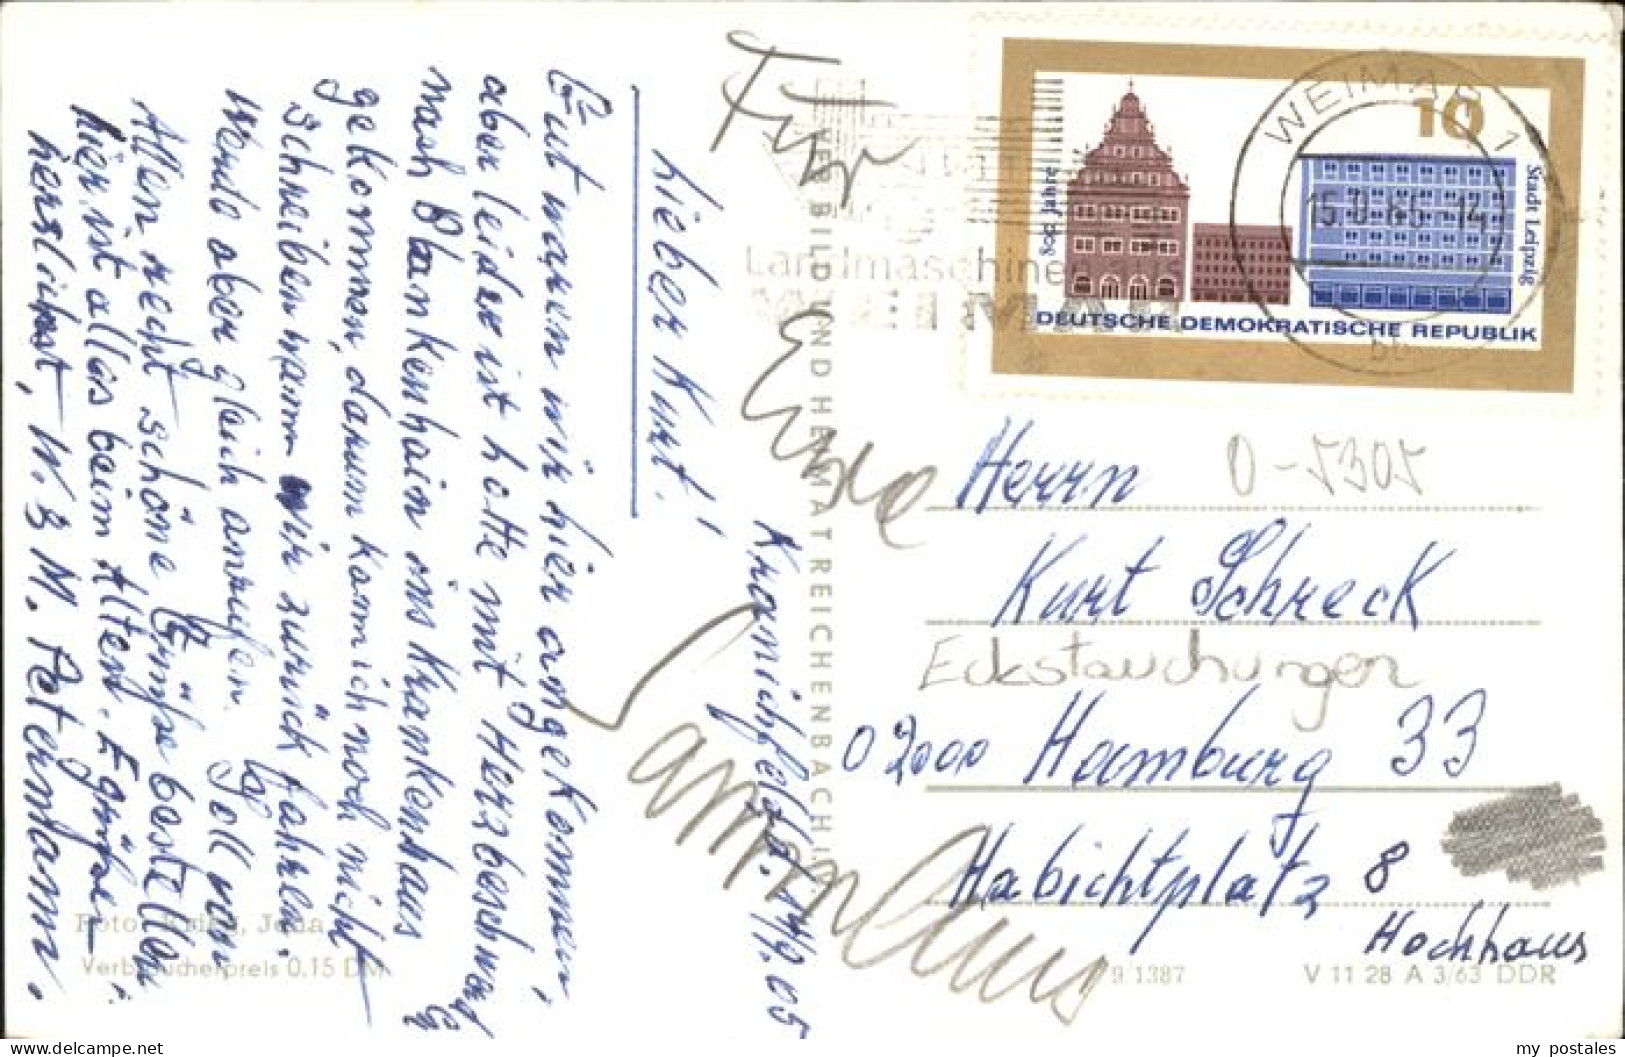 Kranichfeld d. 14/9.65
Lieber Kurt!
Gut waren wir hier angekommen,
aber leider ist Lotte mit Herzbeschwerd
nach Blankenhain ins Krankenhaus
gekommen, darum kann ich noch nicht
schreiben wann wir zurück fahren.
Werde aber gleich anrufen. Soll von
Allen recht schöne Grüße bestellen
hier ist alles beim Alten. Es grüße
herzlichst, W. & M. Petermann.
Für
Eure
BILD UND HEIMAT REICHENBACH I. V.
Landmaschinen
WEIMAR
WEIMAR 1
15.9.65-14
10
800 Jahre
Stadt Leipzig
DEUTSCHE DEMOKRATISCHE REPUBLIK
Herrn
O-5305
Kurt Schreck
Eckstauchungen
02000 Hamburg 33
Habichtplatz 8
Hochhaus
Foto: Krieg, Jena
Verbraucherpreis 0.15 DM
9/1387
V 11 28 A 3/63 DDR
my postales